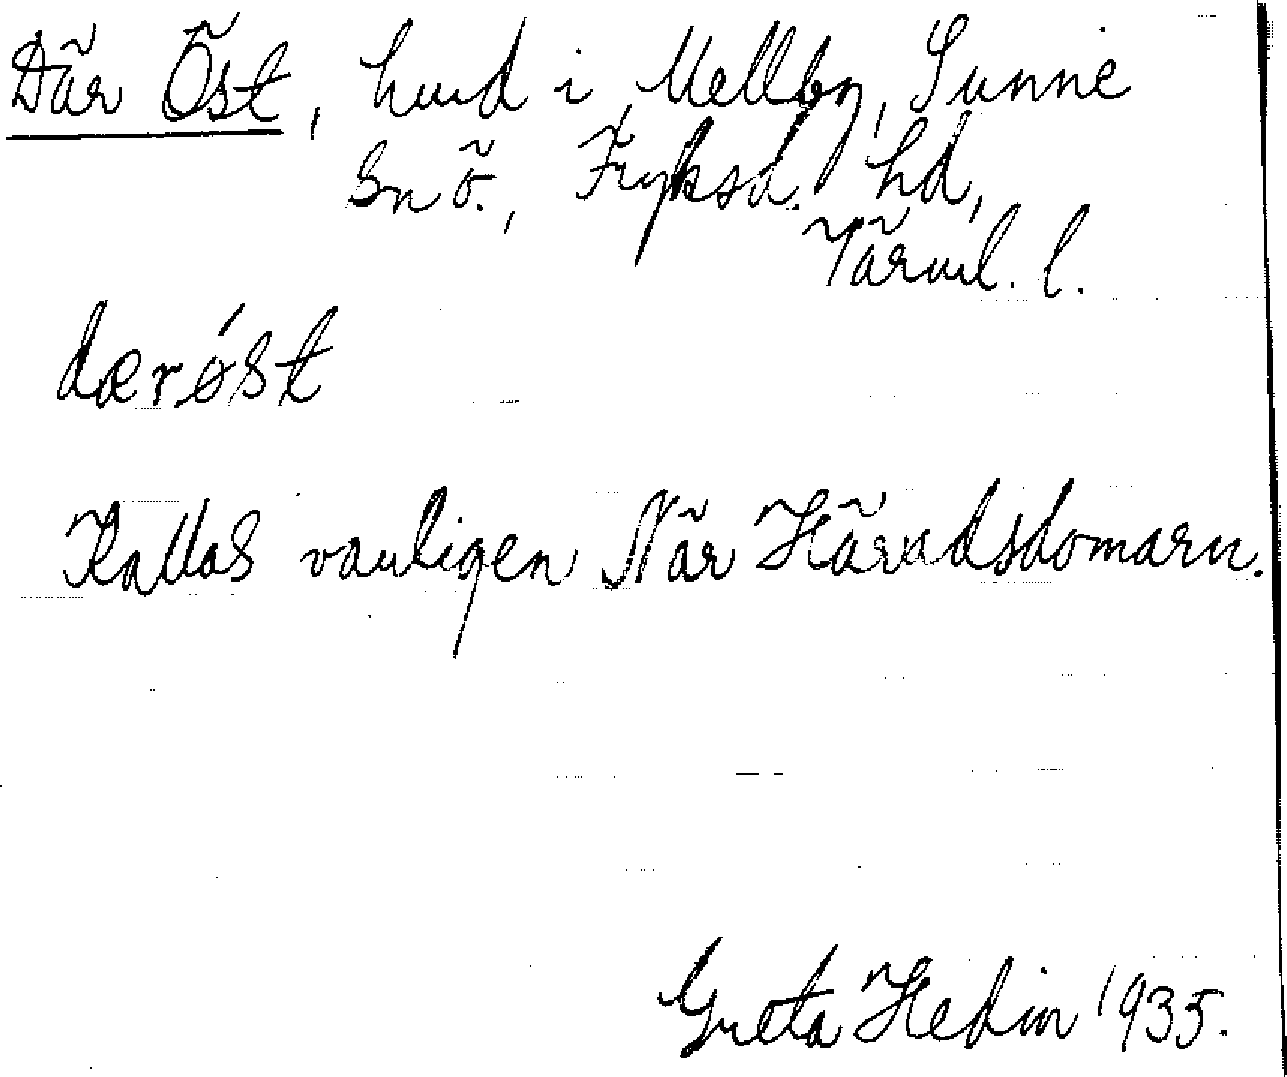 Där Öst, hmd i Mellby, Sunne
sn ö., Fryksd. hd,
Värml. l.
dærǿst
Kallas vanligen När Häradsdomarn.
Greta Hedin 1935.